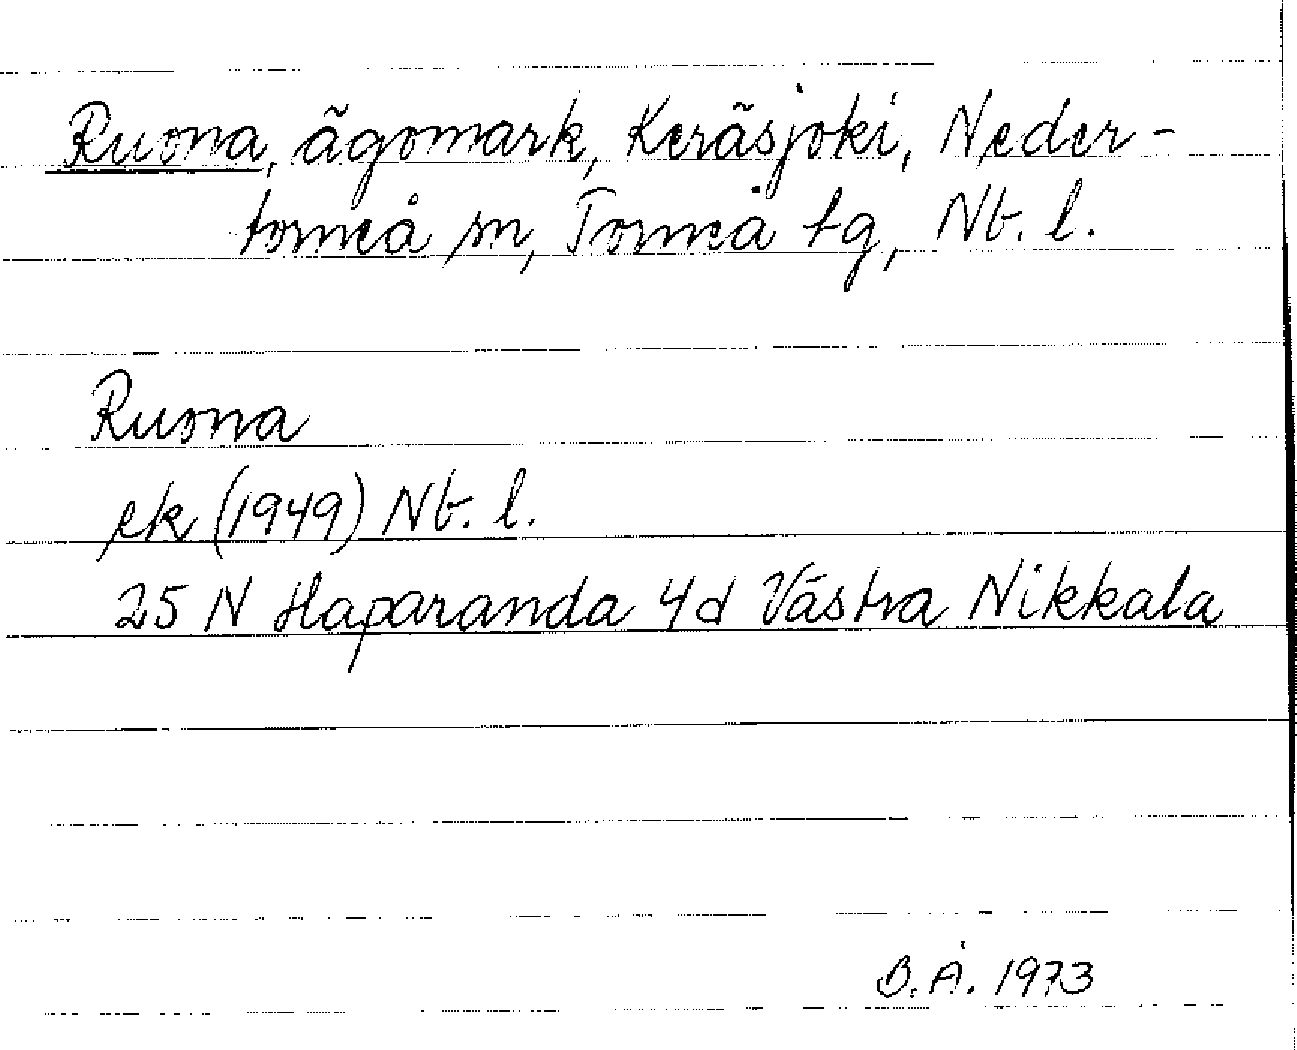 Ruona, ägomark, Keräsjoki, Neder-
torneå sn, Torneå tg, Nb. l.
Ruona
ek (1949) Nb. l.
25 N Haparanda 4d Västra Nikkala
B.Å. 1973